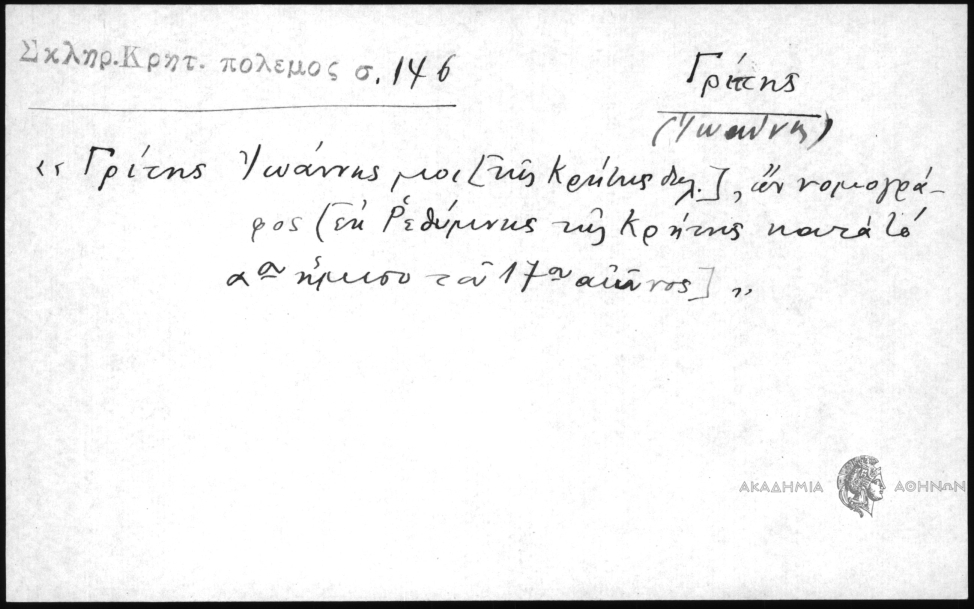 Σκληρ.Κρητ. πολεμος σ. 146
Γρίτης
(Ἰωάννης)
«Γρίτης Ἰωάννης μοι [τῆς Κρήτης δηλ.], ὤν νομογρά-
φος (ἐν Ῥεθύμνης τῆς Κρήτης κατά τό
αον ἥμισυ τοῦ 17ου αἰῶνος] »
ΑΚΑΔΗΜΙΑ ΑΘΗΝΩΝ